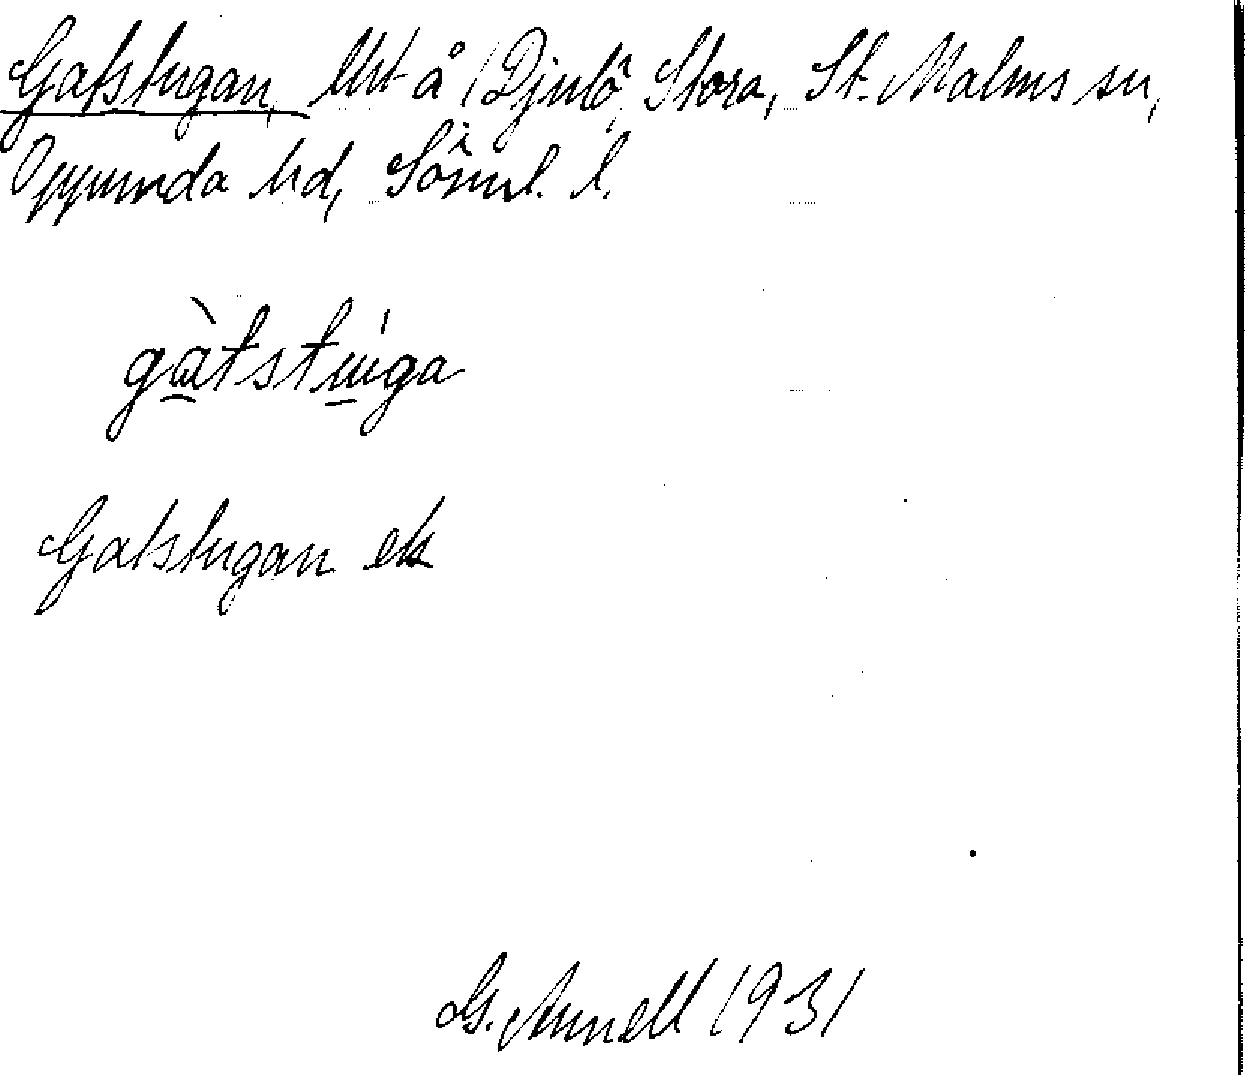 Gatstugan, lht å Djulö, Stora, St. Malms sn,
Oppunda hd, Sörml. l.
gàtstúga
Gatstugan ek
G. Annell 1931